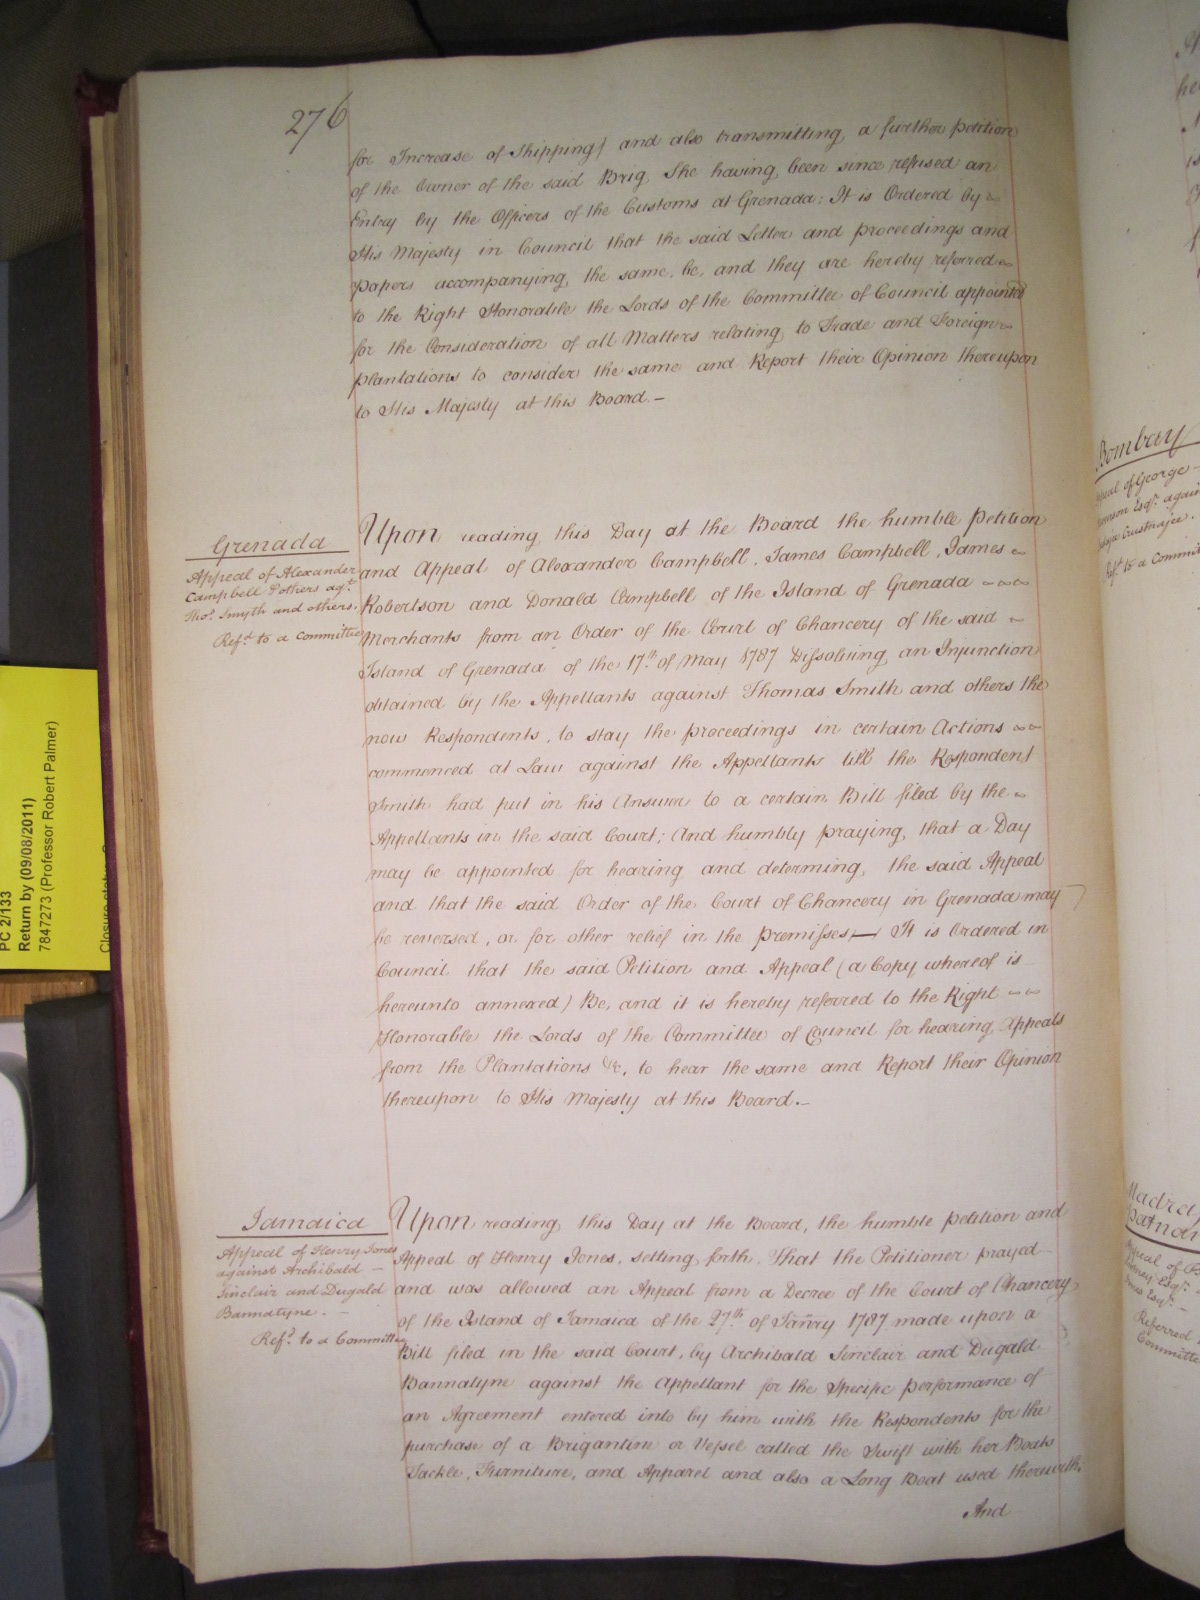 276
for Increase of Shipping) and also transmitting a further Petition
of the Owner of the said Brig, She having been since refused an
Entry by the Officers of the Customs at Grenada: It is Ordered by
His Majesty in Council that the said Letter and proceedings and
Papers accompanying the same, be, and they are hereby referred
to the Right Honorable the Lords of the Committee of Council appointed
for the Consideration of all Matters relating to Trade and Foreign
Plantations to consider the same and Report their Opinion thereupon
to His Majesty at this Board.—
Grenada
Appeal of Alexander
Campbell & others agt.
Thos. Smyth and others.
Refd. to a Committee
Upon reading this Day at the Board the humble Petition
and Appeal of Alexander Campbell, James Campbell, James
Robertson and Donald Campbell of the Island of Grenada
Merchants from an Order of the Court of Chancery of the said
Island of Grenada of the 17th. of May 1787 Dissolving an Injunction
obtained by the Appellants against Thomas Smith and others the
now Respondents, to stay the proceedings in certain Actions
commenced at Law against the Appellants till the Respondent
Smith had put in his Answer to a certain Bill filed by the
Appellants in the said Court; And humbly praying, that a Day
may be appointed for hearing and determing, the said Appeal
and that the said Order of the Court of Chancery in Grenada may
be reversed, or for other relief in the Premisses— It is Ordered in
Council that the said Petition and Appeal (a Copy whereof is
hereunto annexed) Be, and it is hereby referred to the Right
Honorable the Lords of the Committee of Council for hearing Appeals
from the Plantations &c, to hear the same and Report their Opinion
thereupon to His Majesty at this Board.—
Jamaica
Appeal of Henry Jones
against Archibald —
Sinclair and Dugald
Bannatyne. —
Refd. to a Committee
Upon reading this Day at the Board, the humble Petition and
Appeal of Henry Jones, setting forth, That the Petitioner prayed
and was allowed an Appeal from a Decree of the Court of Chancery
of the Island of Jamaica of the 27th. of Janry 1787 made upon a
Bill filed in the said Court, by Archibald Sinclair and Dugald
Bannatyne against the Appellant for the Specific performance of
an Agreement entered into by him with the Respondents for the
purchase of a Brigantine or Vessel called the Swift with her Boats
Tackle, Furniture, and Apparel and also a Long Boat used therewith.
And
PC 2/133
Return by (09/08/2011)
7847273 (Professor Robert Palmer)
Closure status
Bombay
Appeal of George
Esqr. again
Refd. to a Committ
Madra
patna
Appeal of
Esqr.
Esqr. —
Referred
Committe